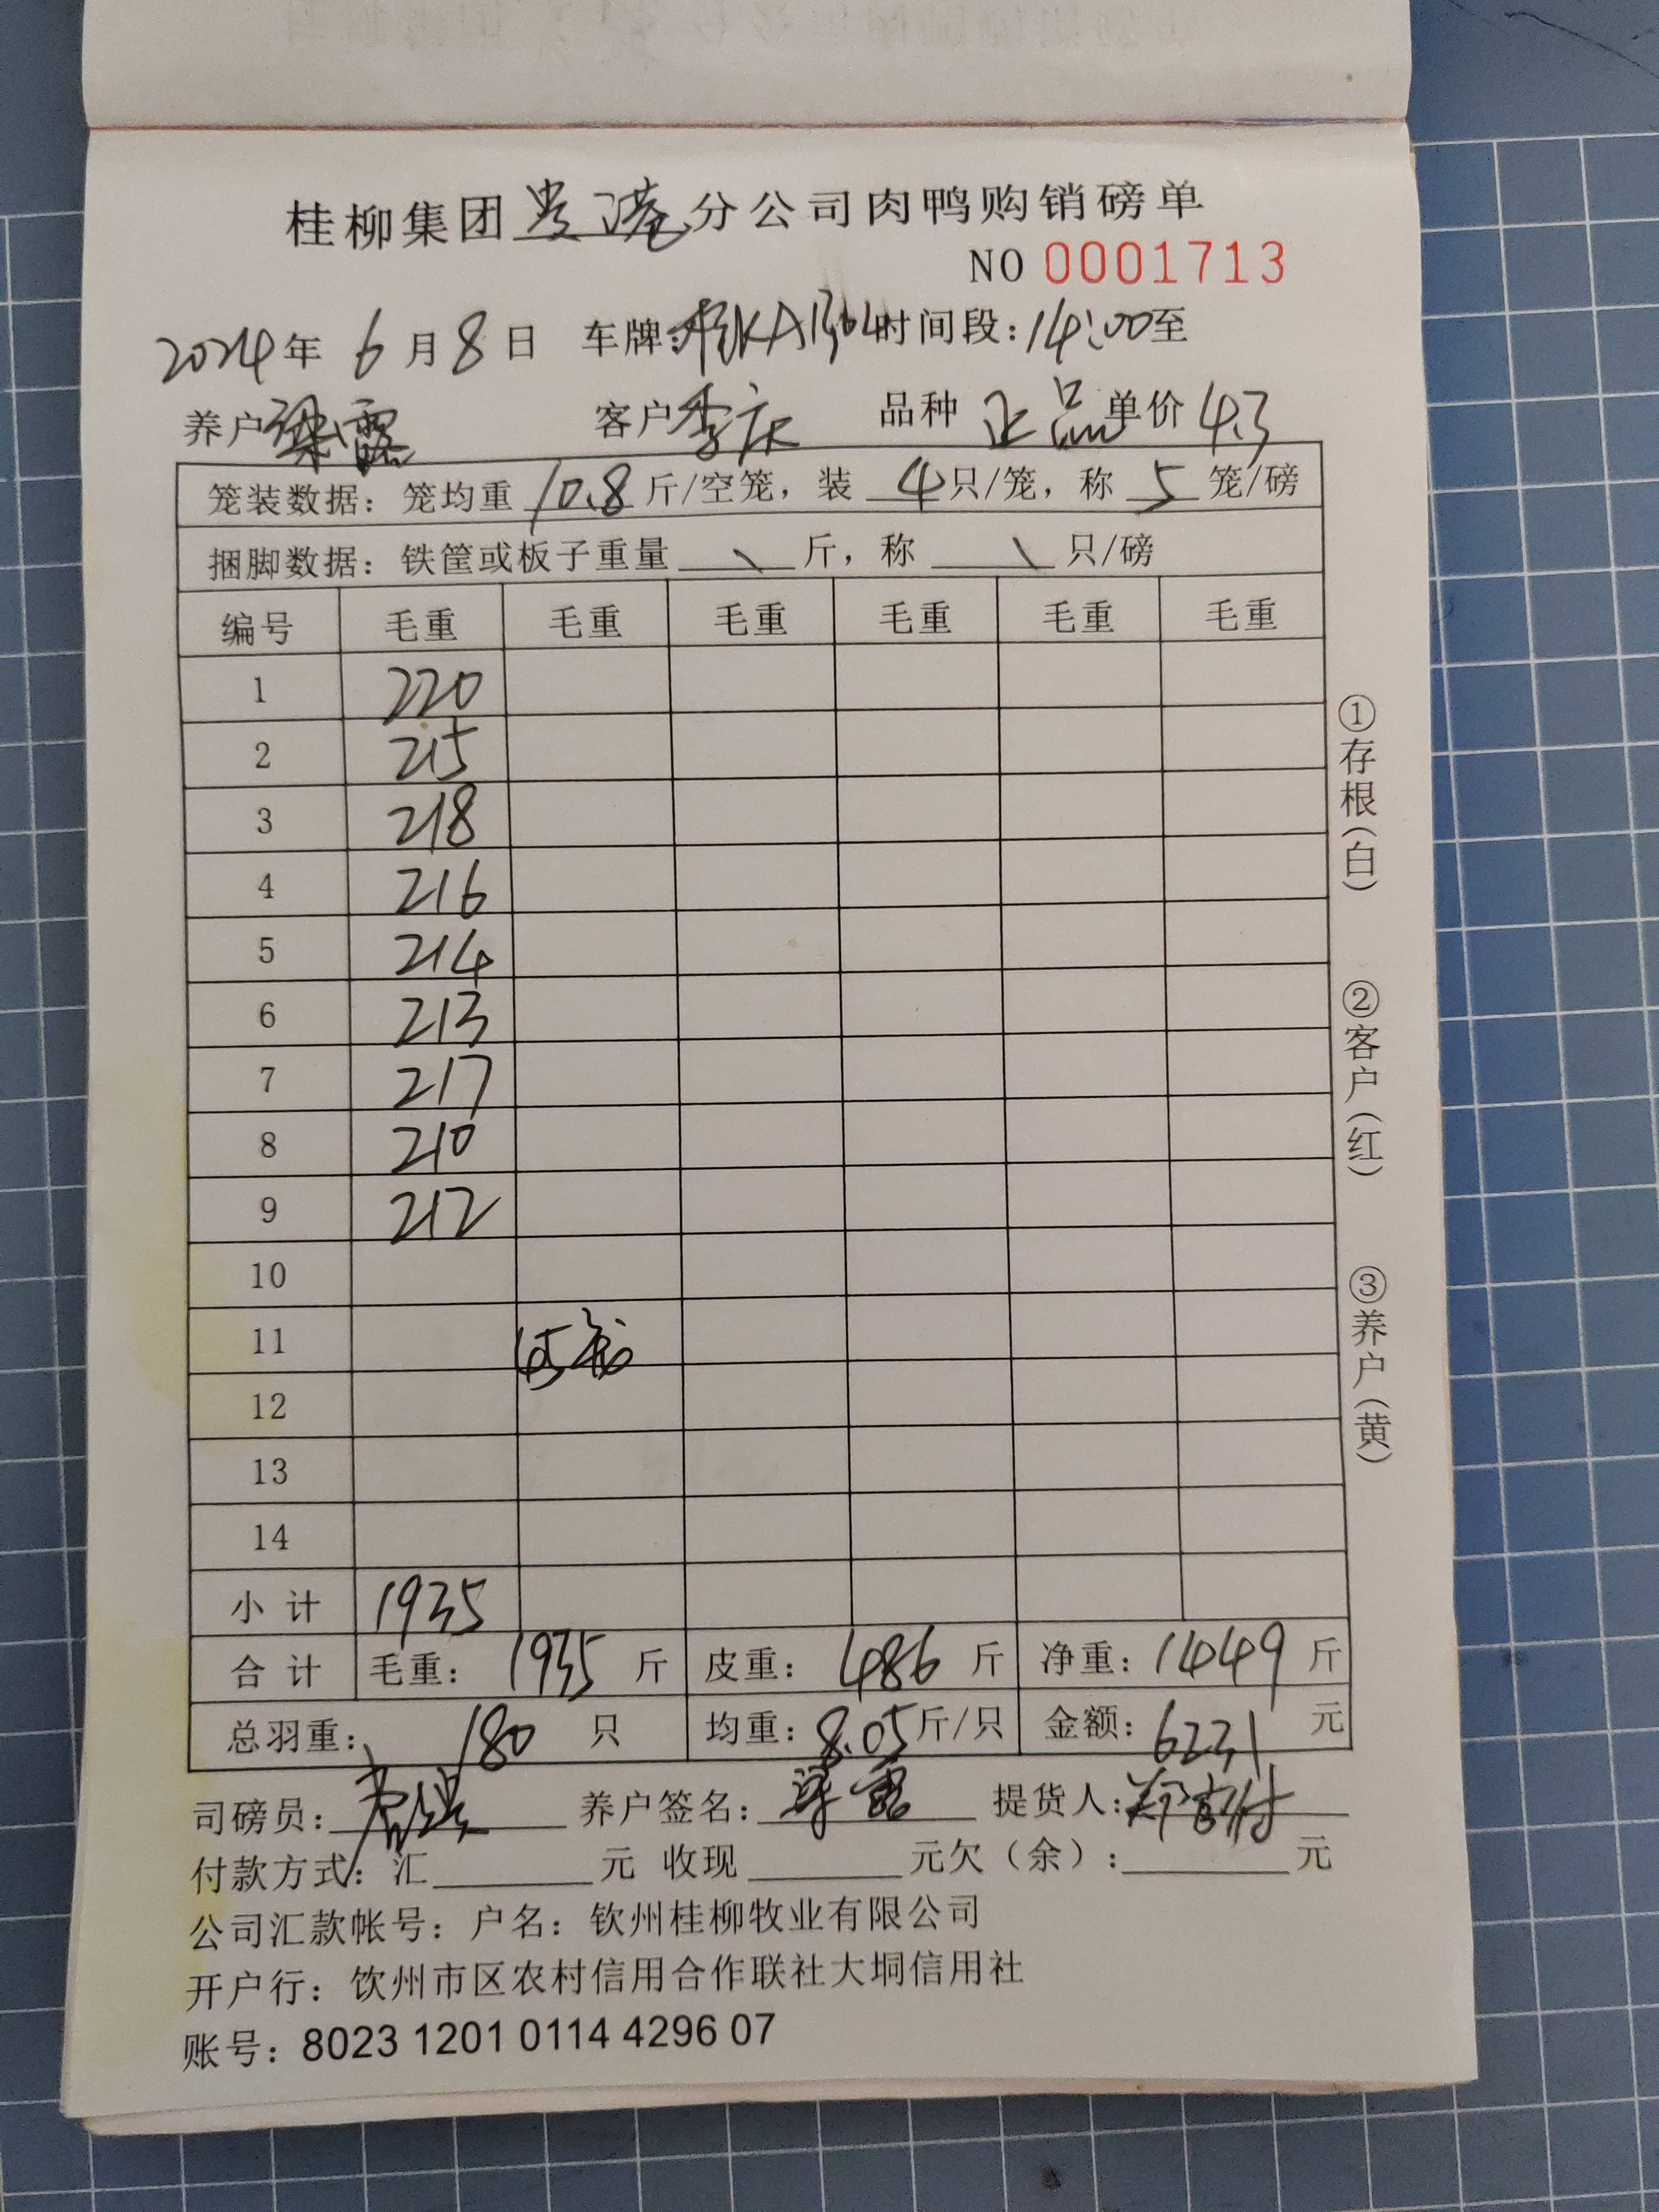 桂柳集团贵港分公司肉鸭购销磅单
NO 0001713
2024年 6月8日 车牌: 时间段:14:00至
养户梁露 客户李庆 品种 正品 单价 4.3
笼装数据: 笼均重 10.8 斤/空笼, 装 4 只/笼, 称 5 笼/磅
捆脚数据: 铁筐或板子重量 \ 斤, 称 \ 只/磅
编号 毛重 毛重 毛重 毛重 毛重 毛重
1 220
2 215
3 218
4 216
5 214
6 213
7 217
8 210
9 212
10
11
12
13
14
小计 1935
合计 毛重: 1935 斤 皮重: 486 斤 净重: 1449 斤
总羽重: 180 只 均重: 8.05斤/只 金额: 6231 元
司磅员: 养户签名: 梁露 提货人:
付款方式: 汇 元 收现 元欠(余): 元
公司汇款帐号: 户名: 钦州桂柳牧业有限公司
开户行: 钦州市区农村信用合作联社大垌信用社
账号: 8023 1201 0114 4296 07
①存根(白) ②客户(红) ③养户(黄)